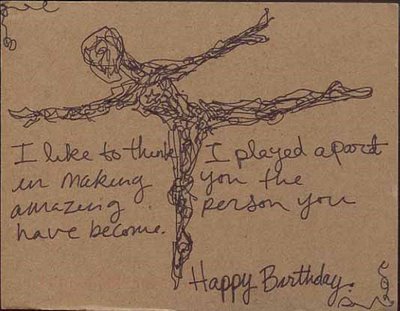 I like to think I played apart
in making you the
amazing person you
have become.
Happy Birthday.